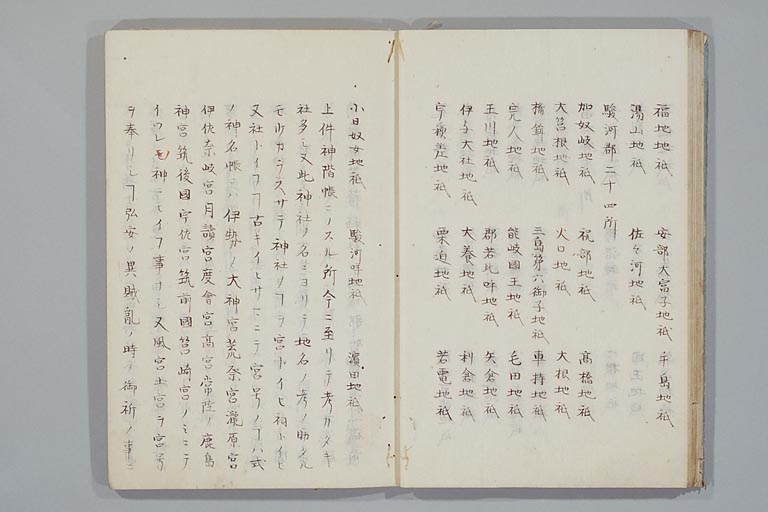 福地地祇 安部大富子地祇 手島地祇
湯山地祇 佐々河地祇
駿河郡二十四所
加奴岐地祇 祝部地祇 高橋地祇
大筥根地祇 火口地祇 大根地祇
三島第六御子地祇 車持地祇
完人地祇 能岐國玉地祇 毛田地祇
玉川地祇 郡若比咩地祇 矢倉地祇
伊与大社地祇 大養地祇 利倉地祇
地祇 栗道地祇 若電地祇
小日奴女地祇 駿河咩地祇 濱田地祇
上件神階帳ニノスル所今ニ至リテ考カタキ
社多シ又此神社ノ名ニヨリテ地名ノ考ノ助
神社ノフラ宮トイヒ祠トイヒ
又社トイフフ古キイヒサマニテ宮号ノフハ式
ノ神名帳ニ伊勢ノ大神宮荒奈宮瀧原宮
伊佐奈岐宮月讀宮度會宮高宮常陸ノ鹿島
神宮筑後國宇佐宮筑前國筥崎宮ノミニテ
イツレモ神 事 又風宮土宮ヲ宮号
ヲ奉リシフ弘安ノ異賊亂ノ時ノ御祈ノ事ニ